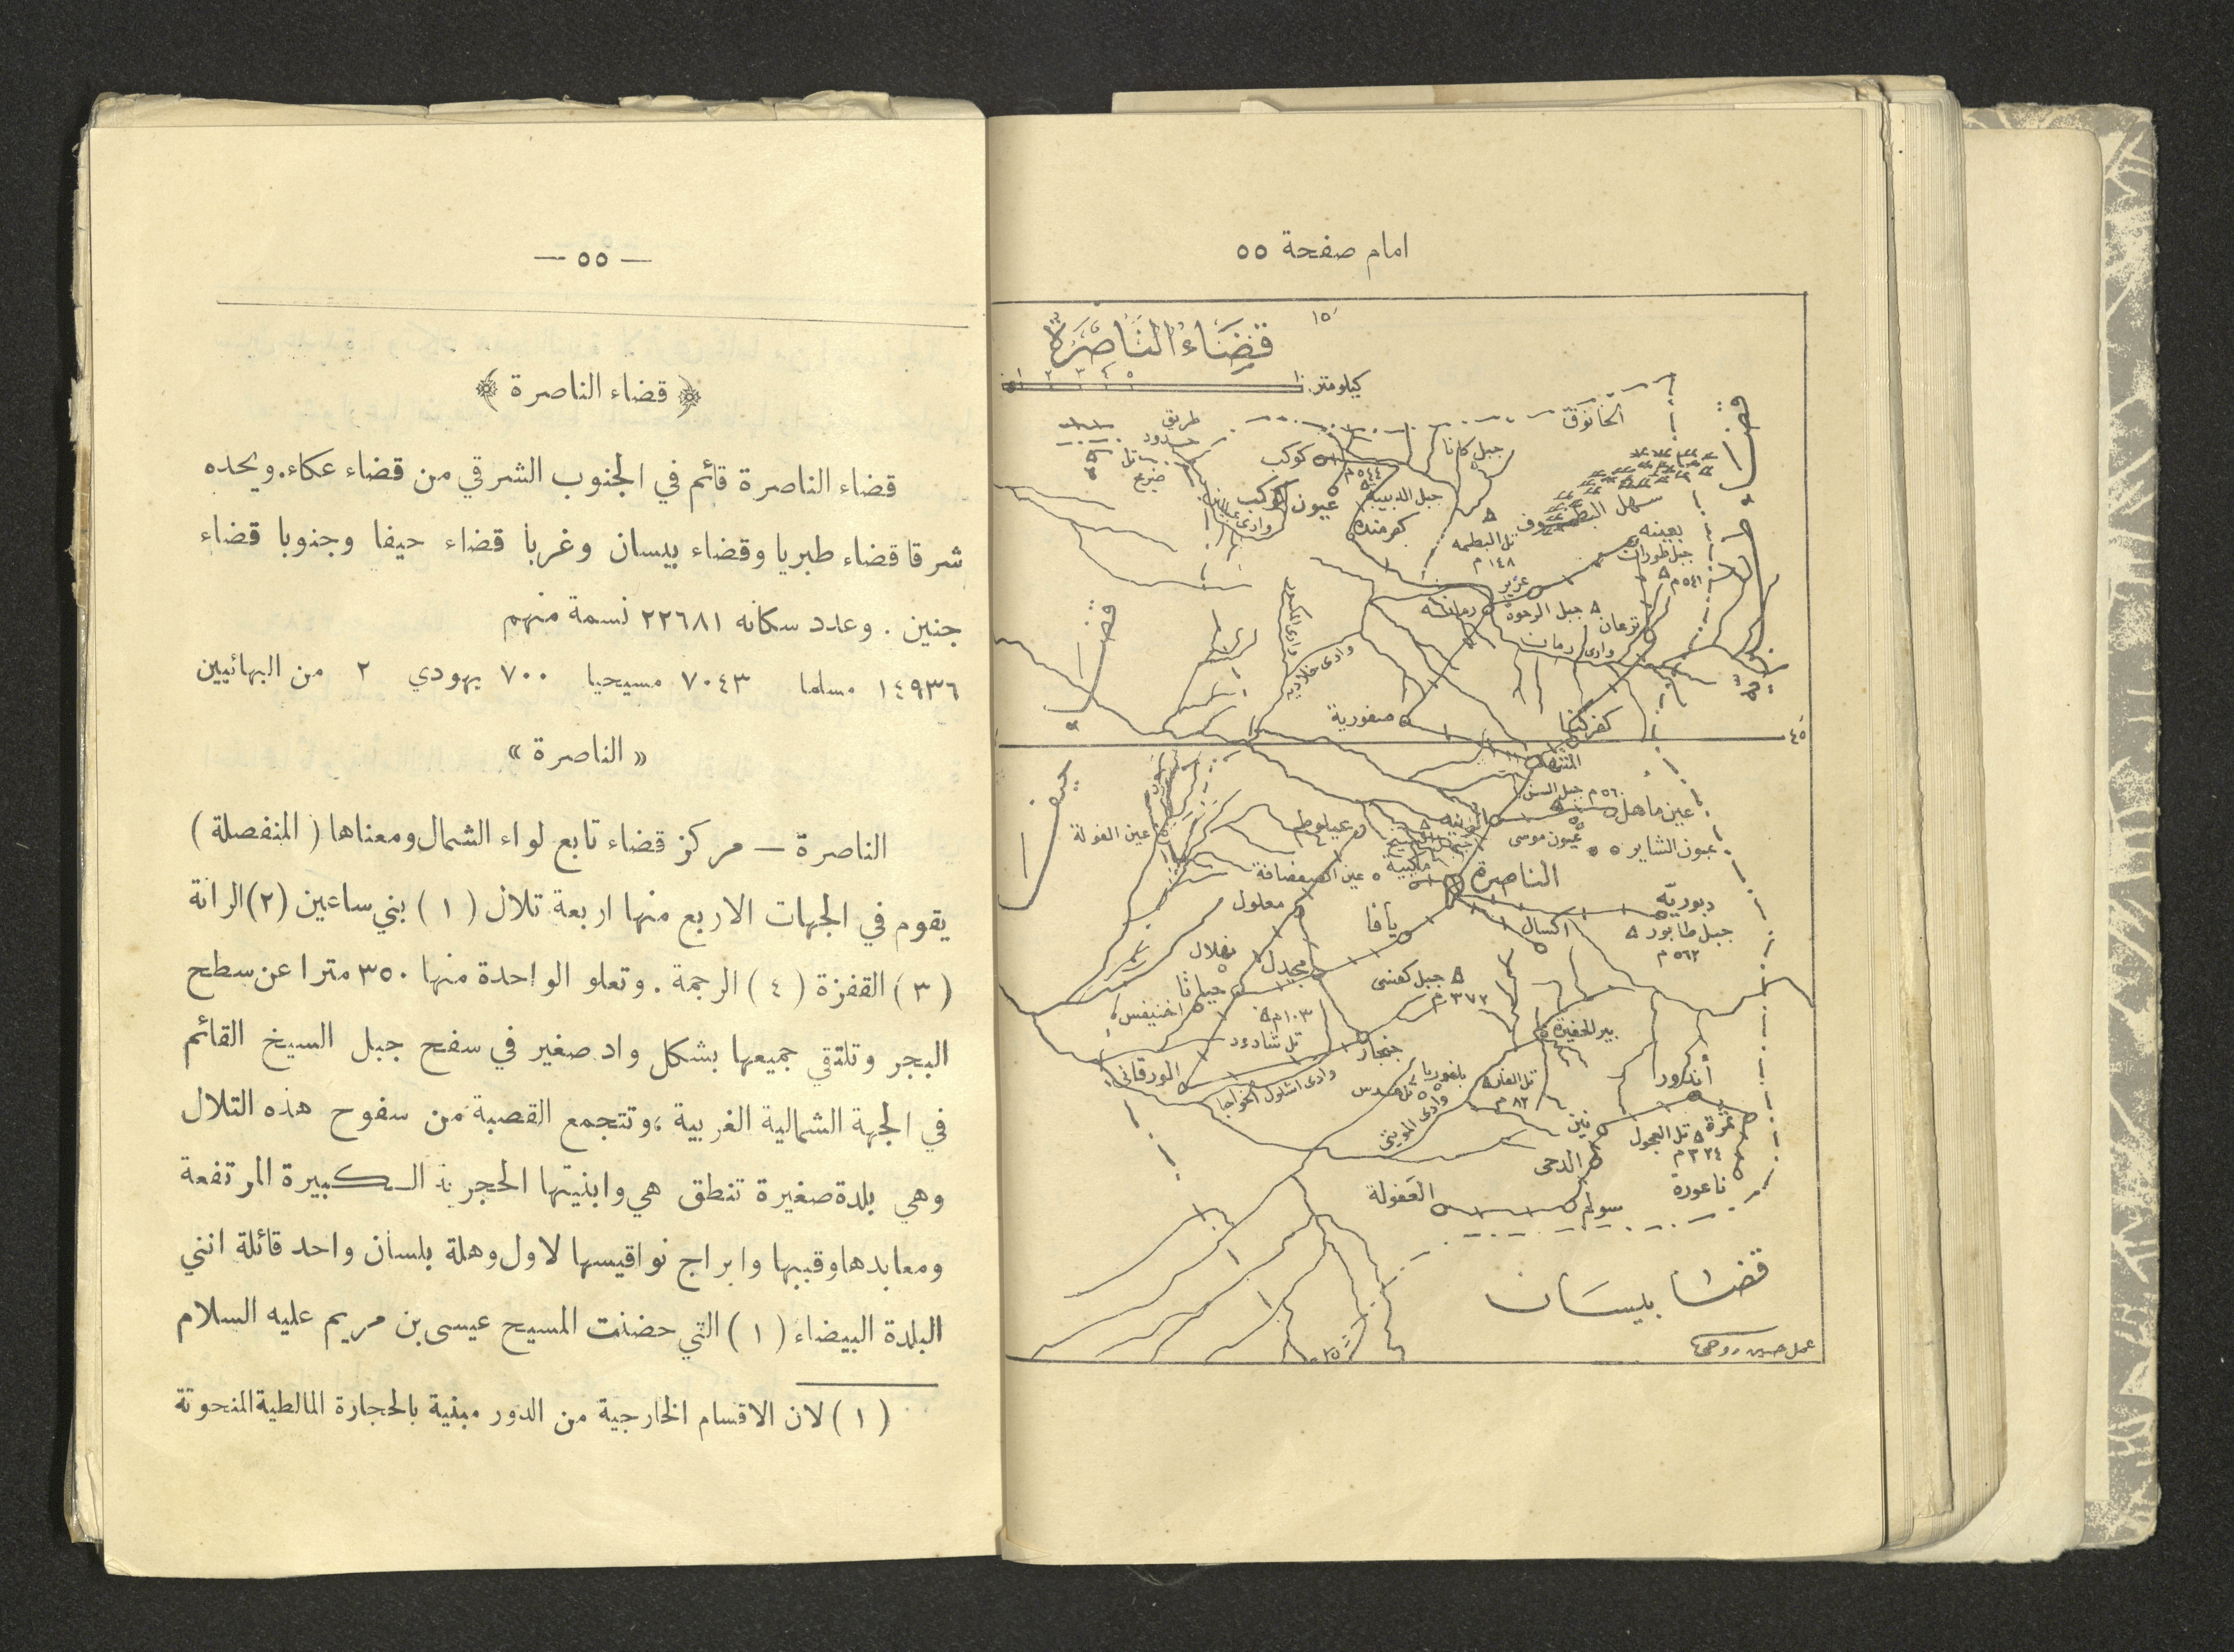 امام صفحة ٥٥
١٥
قضاء الناصرة
١ ٢ ٣ ٤ ٥ ١٠
كيلومتر
طريق
حدود
تل
ضريح
الخانوق
قضا
جبل كانا
كوكب
٥٤٤ م
جبل الديبيه
عيون كوكب
كفرمنده
سهل البطوف
تل البطمه
١٤٨ م
بعينه
جبل طورات
٥٤١ م
عزير
رمانه
جبل الرحوة
ترعان
وادى رمان
وادى خلاديه
قضا
صفورية
كفركنا
٤٥
المشهد
٥٦٠ م جبل السن
عين ماهل
الرينه
عيون موسى
عيون الشاير
عيلوط
عين الفولة
عين الصفصافة
ماكبية
الناصرة
معلول
يافا
اكسال
دبوريه
جبل طابور
٥٦٢ م
حيفا
نهلال
مجدل
جبل كفسى
٣٧٢ م
جباثا
اخنيفس
١٠٣ م
تل شادود
بير الحفيرة
جنجار
الورقانى
وادى اشلول الخواجا
بلفوريا
تل الفار
٨٢ م
أندور
وادى المويلى
نين
تل العجول
٣٢٤ م
تمرة
الدحى
ناعورة
العفولة
سولم
قضا بيسان
٣٥
عمل حسين روحى
— ٥٥ —
﴿ قضاء الناصرة ﴾
قضاء الناصرة قائم في الجنوب الشرقي من قضاء عكاء. ويحده
شرقا قضاء طبريا وقضاء بيسان وغرباً قضاء حيفا وجنوبا قضاء
جنين . وعدد سكانه ٢٢٦٨١ نسمة منهم
١٤٩٣٦ مسلما ٧٠٤٣ مسيحيا ٧٠٠ يهودي ٢ من البهائيين
« الناصرة »
الناصرة — مركز قضاء تابع لواء الشمال ومعناها ( المنفصلة )
يقوم في الجهات الاربع منها اربعة تلال ( ١ ) بني ساعين (٢) الرانة
( ٣ ) القفزة ( ٤ ) الرجمة . وتعلو الواحدة منها ٣٥٠ مترا عن سطح
البجر وتلتقي جميعها بشكل واد صغير في سفح جبل السيخ القائم
في الجهة الشمالية الغربية ، وتتجمع القصبة من سفوح هذه التلال
وهي بلدة صغيرة تنطق هي وابنيتها الحجرية الكبيرة المرتفعة
ومعابدها وقببها وابراج نواقيسها لاول وهلة بلسان واحد قائلة انني
البلدة البيضاء ( ١ ) التي حضنت المسيح عيسى بن مريم عليه السلام
( ١ ) لان الاقسام الخارجية من الدور مبنية بالحجارة المالطية المنحوتة